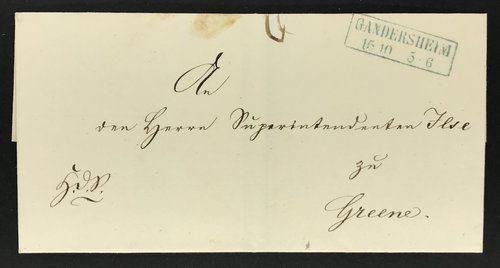 GANDERSHEIM
15 10 5-6
An
den Herrn Superintendenten Ilse
zu
H.d.S.
Greene.